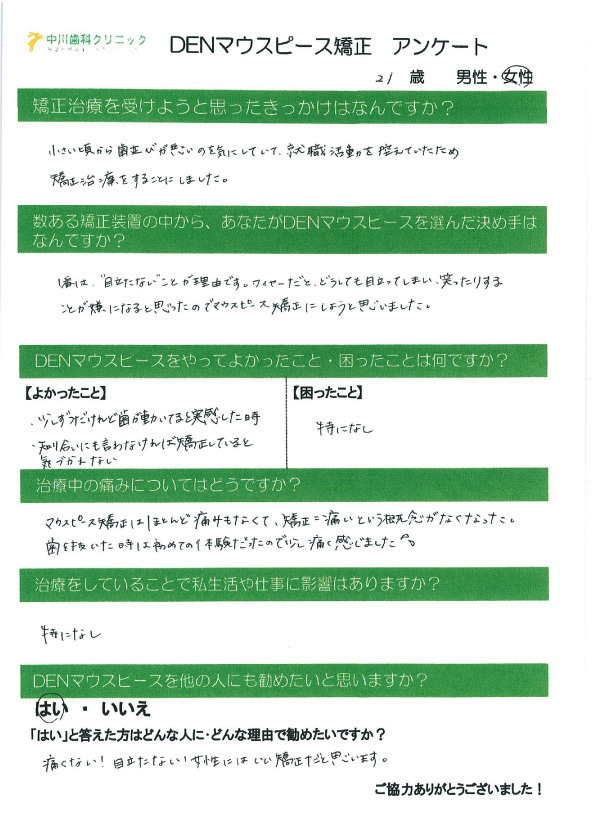 中川歯科クリニック
DENマウスピース矯正 アンケート
21 歳 男性・女性
矯正治療を受けようと思ったきっかけはなんですか？
小さい頃から歯並びが悪いのを気にしていて、就職活動を控えていたため
矯正治療をすることにしました。
数ある矯正装置の中から、あなたがDENマウスピースを選んだ決め手は
なんですか？
1番は、"目立たない"ことが理由です。ワイヤーだと、どうしても目立ってしまい、笑ったりする
ことが嫌になると思ったのでマウスピース矯正にしようと思いました。
DENマウスピースをやってよかったこと・困ったことは何ですか？
【よかったこと】
・少しずつだけれど歯が動いてると実感した時
・知り合いにも言わなければ矯正していると
気づかれない
【困ったこと】
特になし
治療中の痛みについてはどうですか？
マウスピース矯正はほとんど痛みもなくて、矯正＝痛いという概念がなくなった。
歯を抜いた時は初めての体験だったので少し痛く感じました
治療をしていることで私生活や仕事に影響はありますか？
特になし
DENマウスピースを他の人にも勧めたいと思いますか？
はい ・ いいえ
「はい」と答えた方はどんな人に・どんな理由で勧めたいですか？
痛くない！目立たない！女性にはいい矯正だと思います。
ご協力ありがとうございました！